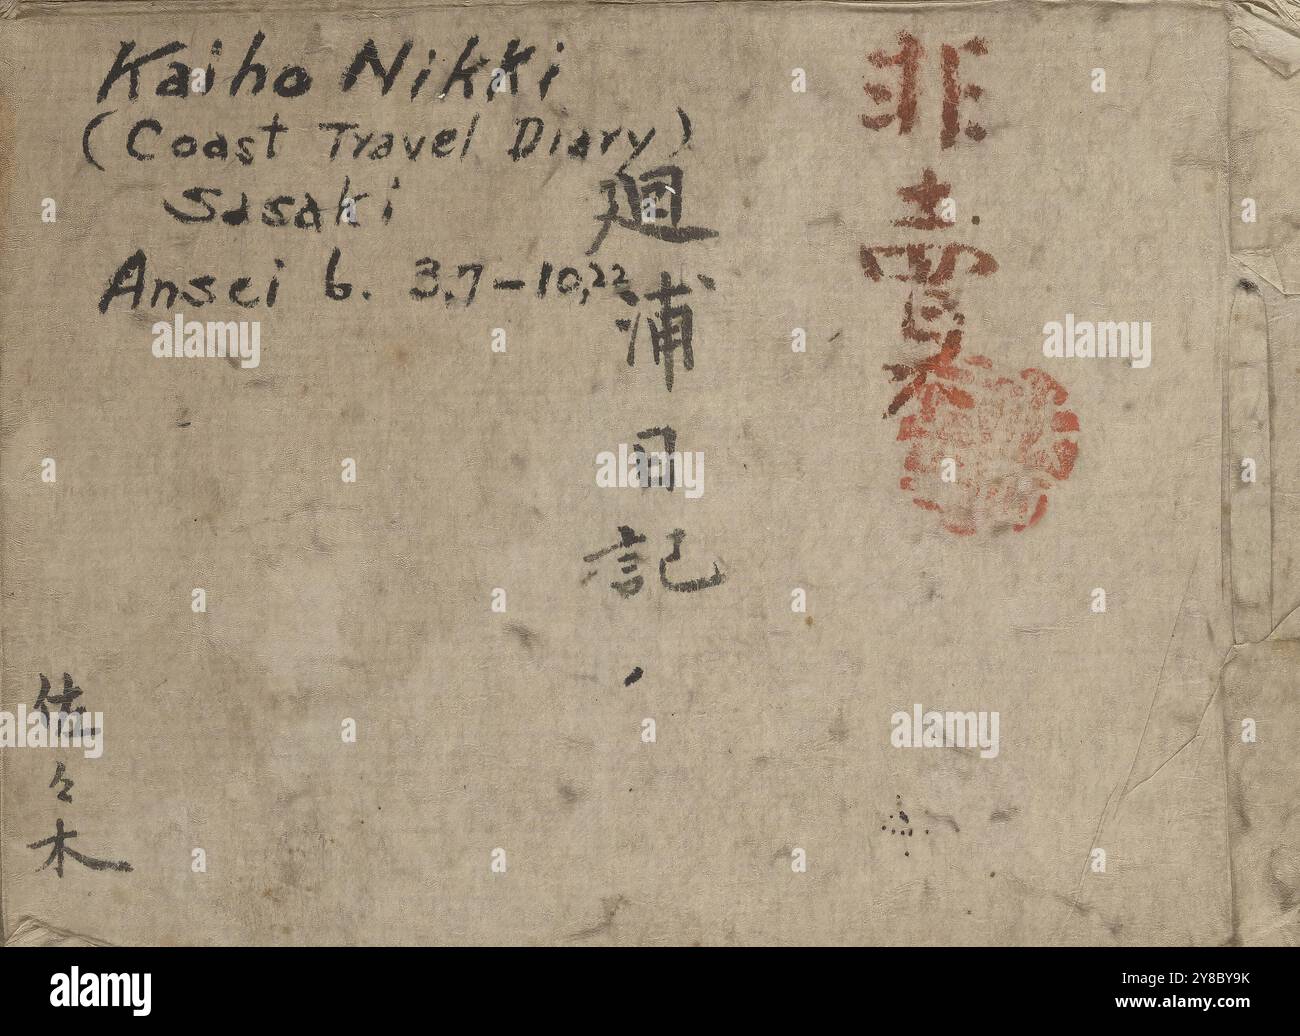 Kaiho Nikki
(Coast Travel Diary)
Sasaki
Ansei 6. 3.7-10.22
非売
廻浦日記
佐々木
alamy
Image ID: 2Y8BY9K
www.alamy.com